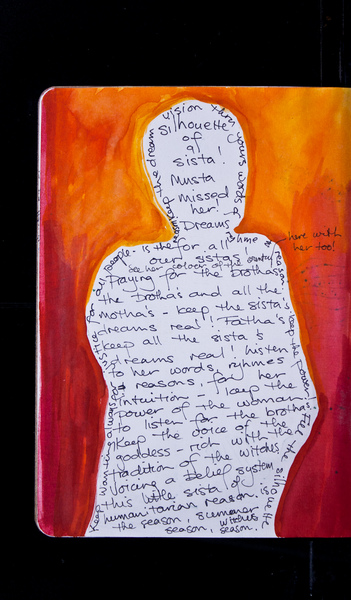 Silhouette
of
a
sista!
Musta
missed
her!
Dreams
for all
our sistas
see her colour of the
praying for the brothas
the brotha's and all the
motha's - keep the sista's
dreams real! Fatha's
keep all the sista's
dreams real! listen
to her words, ryhmes
& reasons, for her
intuition - keep the
power of the woman
to listen for the brotha's
Keep the voice of the
goddess - rich with the
tradition of the witches
Voicing a belief system
this little sista of
humanitarian reason, is
the season, summer
witches
season, season.
here with
her too!
keep the dream
vision
yours words
people - is the
rhyme & reason
keep the power
feel the
silhouette